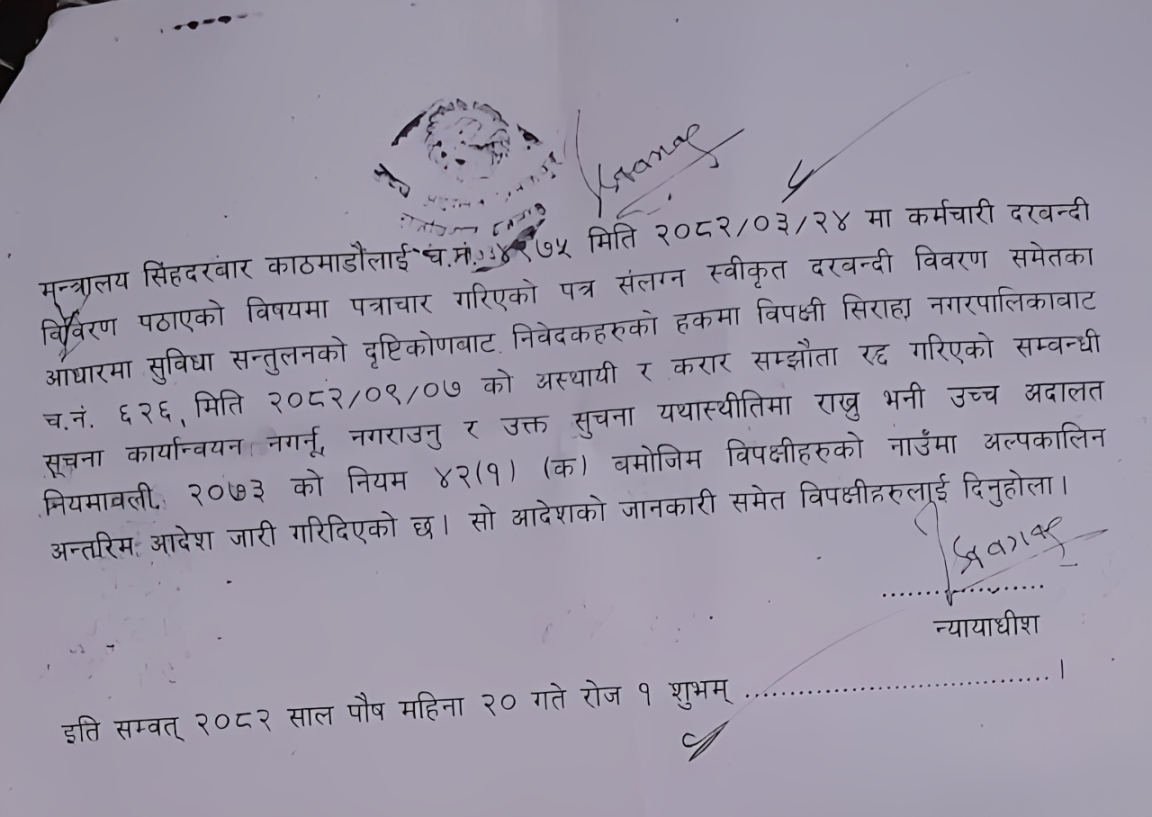 मन्त्रालय सिंहदरबार काठमाडौंलाई च.नं. मिति २०८२/०३/२४ मा कर्मचारी दरबन्दी
विवरण पठाएको विषयमा पत्राचार गरिएको पत्र संलग्न स्वीकृत दरबन्दी विवरण समेतका
आधारमा सुविधा सन्तुलनको दृष्टिकोणबाट निवेदकहरुको हकमा विपक्षी सिराहा नगरपालिकावाट
च.नं. ६२६, मिति २०८२/०९/०७ को अस्थायी र करार सम्झौता रद्द गरिएको सम्वन्धी
सूचना कार्यान्वयन नगर्नू, नगराउनु र उक्त सुचना यथास्थीतिमा राख्नु भनी उच्च अदालत
नियमावली, २०७३ को नियम ४२(१) (क) वमोजिम विपक्षीहरुको नाउँमा अल्पकालिन
अन्तरिम आदेश जारी गरिदिएको छ। सो आदेशको जानकारी समेत विपक्षीहरुलाई दिनुहोला।
....................
न्यायाधीश
इति सम्वत् २०८२ साल पौष महिना २० गते रोज १ शुभम् ....................................।